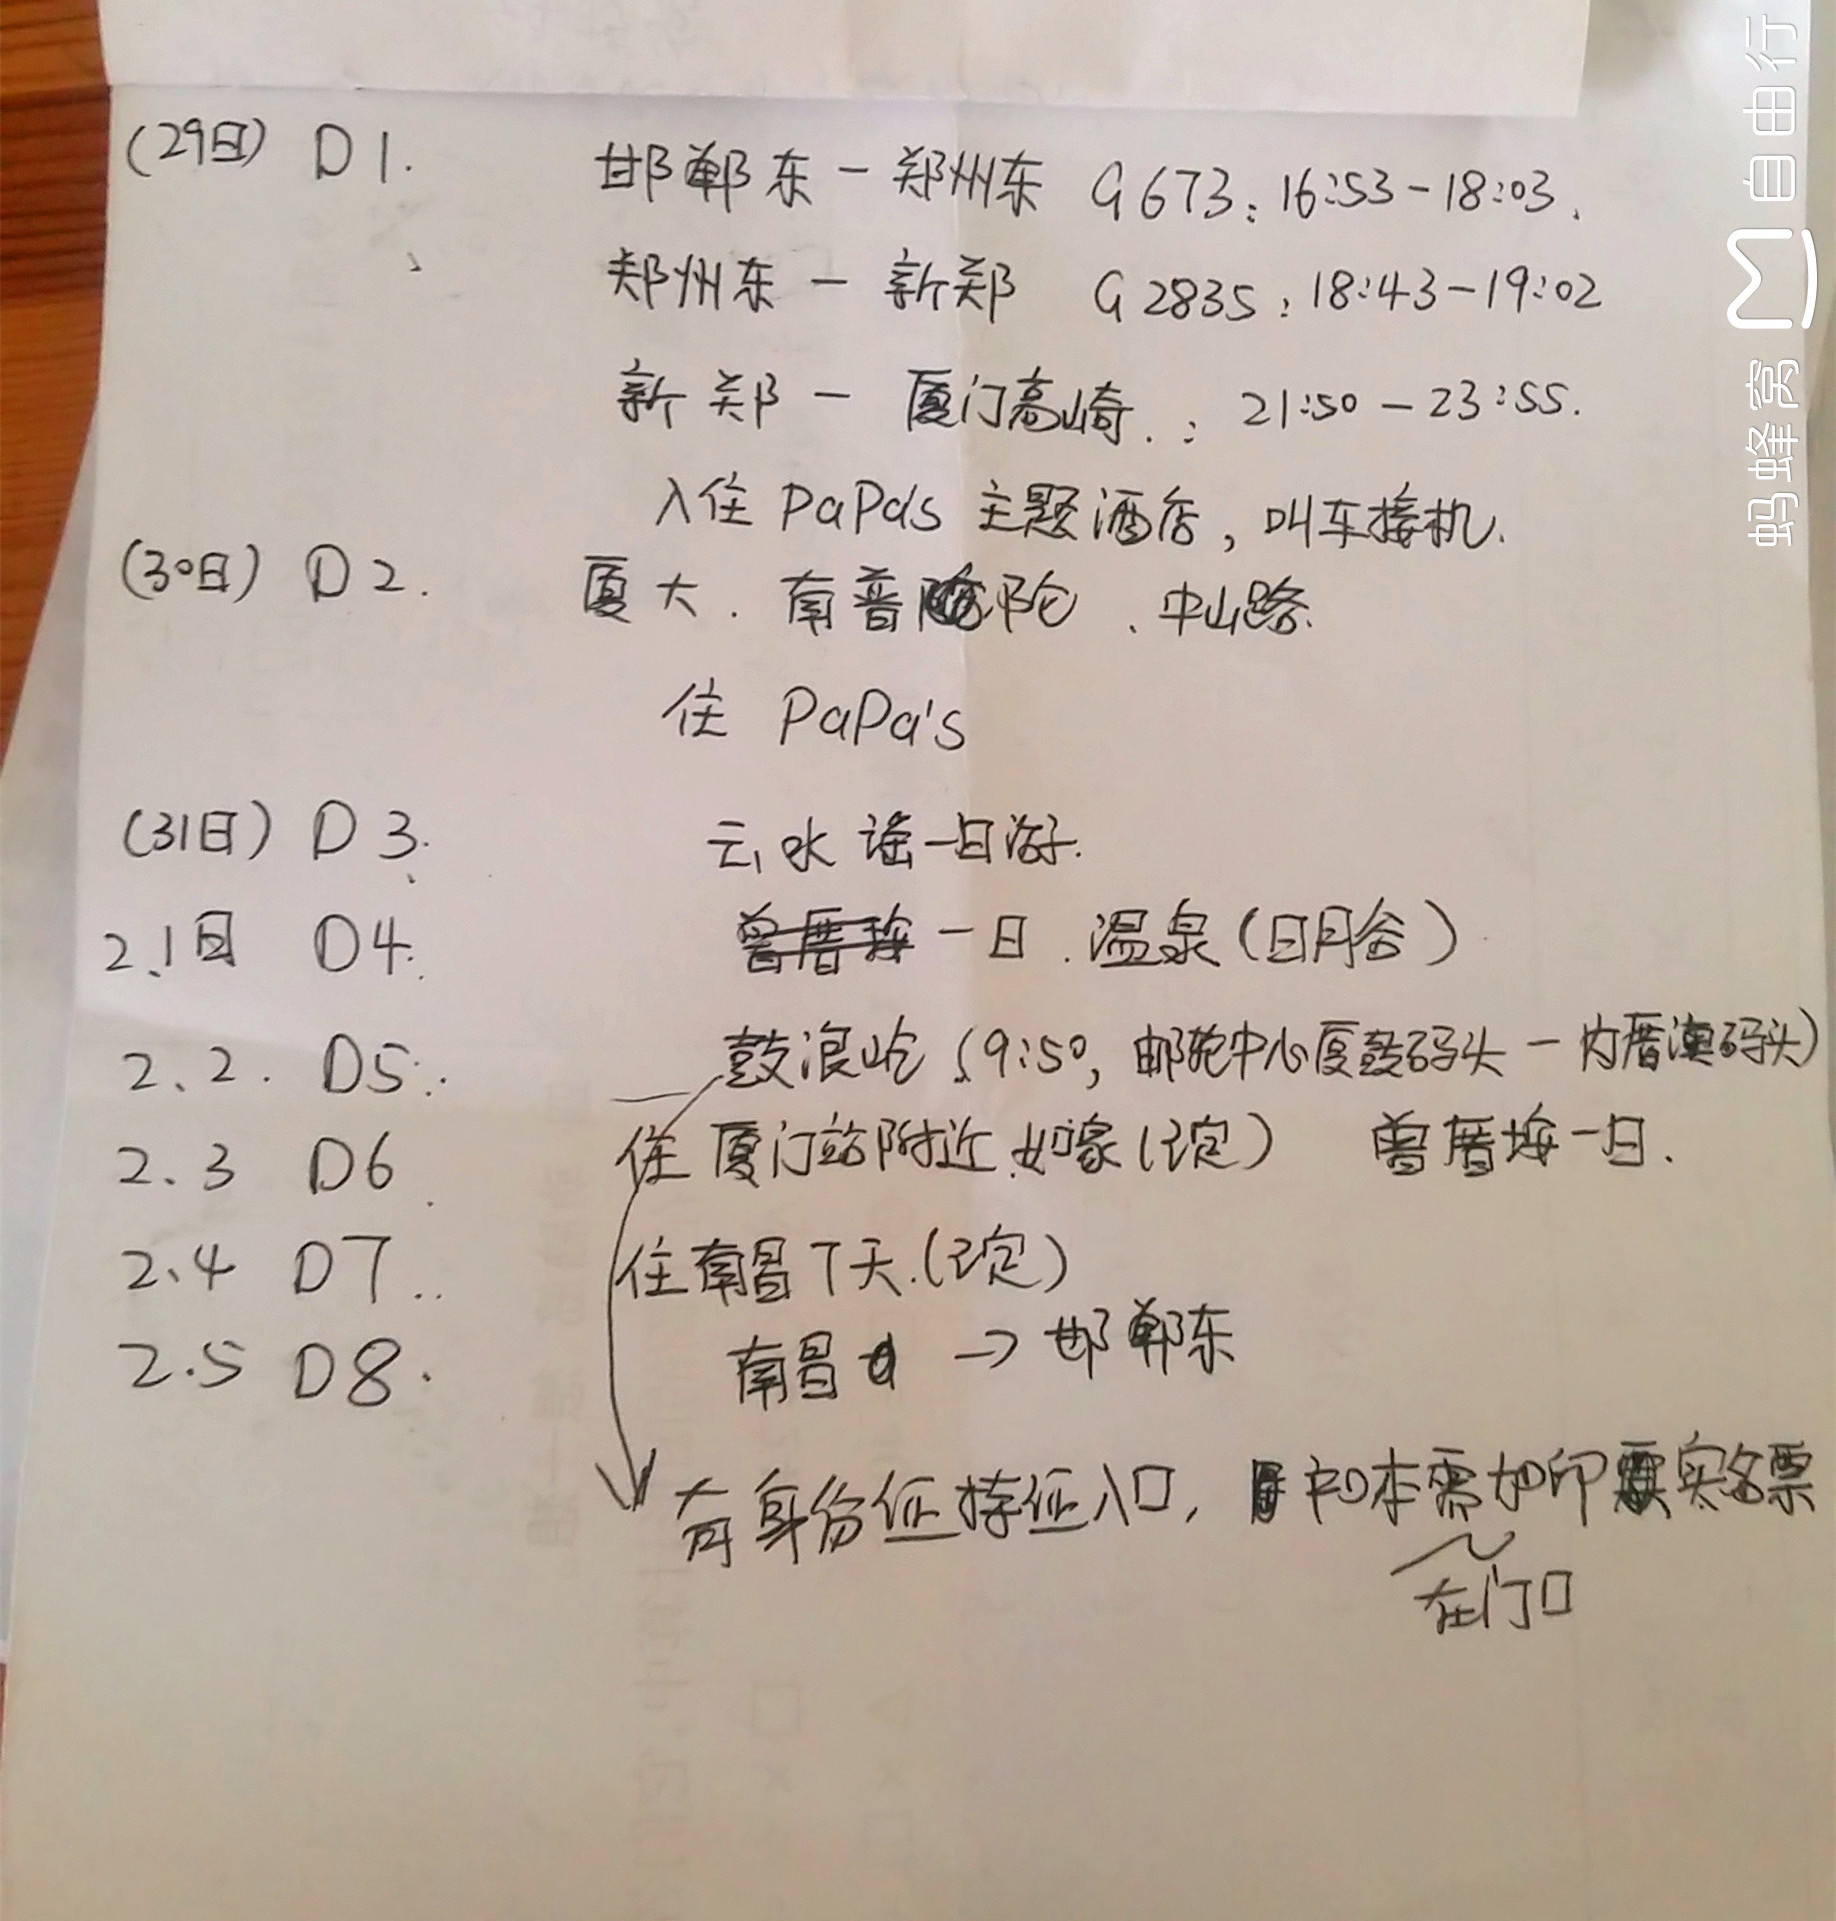 (29日) D1. 邯郸东-郑州东 G673:16:53-18:03.
郑州东-新郑 G2835:18:43-19:02
新郑-厦门高崎.: 21:50-23:55.
入住PaPa's主题酒店,叫车接机.
(30日) D2. 厦大.南普陀、中山路.
住 PaPa's
(31日) D3. 云水谣一日游.
2.1日 D4. 曾厝垵一日.温泉(日月谷)
2.2. D5. 鼓浪屿(9:50,邮轮中心厦鼓码头-内厝澳码头)
2.3 D6 住厦门站附近.如家(已定) 曾厝垵一日.
2.4 D7.. 住南昌7天.(已定)
2.5 D8. 南昌 → 邯郸东
有身份证持证入口,户口本需加印实名票
在门口
蚂蜂窝 自由行